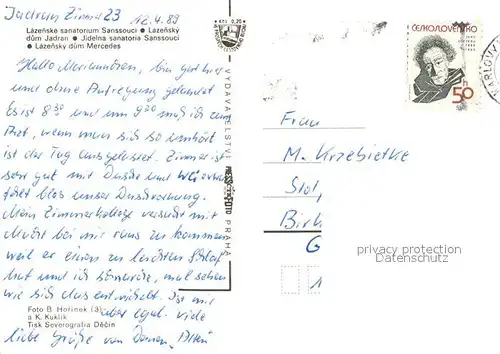 Jadran Zimmer 23 12.4.89
Lázeňské sanatorium Sanssouci • Lázeňský
dům Jadran • Jídelna sanatoria Sanssouci
• Lázeňský dům Mercedes
Hallo Mariannchen, bin gut hier
und ohne Aufregung gelandet
Es ist 8 30 und um 9 30 muß ich zum
Arzt, wenn man sich so umhört
ist der Tag ausgelastet. Zimmer ist
sehr gut mit Dusche und WC
fehlt blos unser Duschvorhang.
Mein Zimmerkollege versucht mit
Macht bei mir raus zu kommen
weil er einen zu leichten Schlaf
hat und ich schnarche, mal sehen
wie sich das entwickelt. Ist mir
aber egal. viele
liebe Grüße von Deinem
Foto B. Hořínek (3)
a K. Kuklík
Tisk Severografia Děčín
Kčs 0,20
VYDAVATELSTVÍ
PRESSFOTO
PRAHA
ČESKOSLOVENSKO
50 h
KARLOVY
Frau
M. Krzebietke
Birk
G
1
privacy protection
Datenschutz